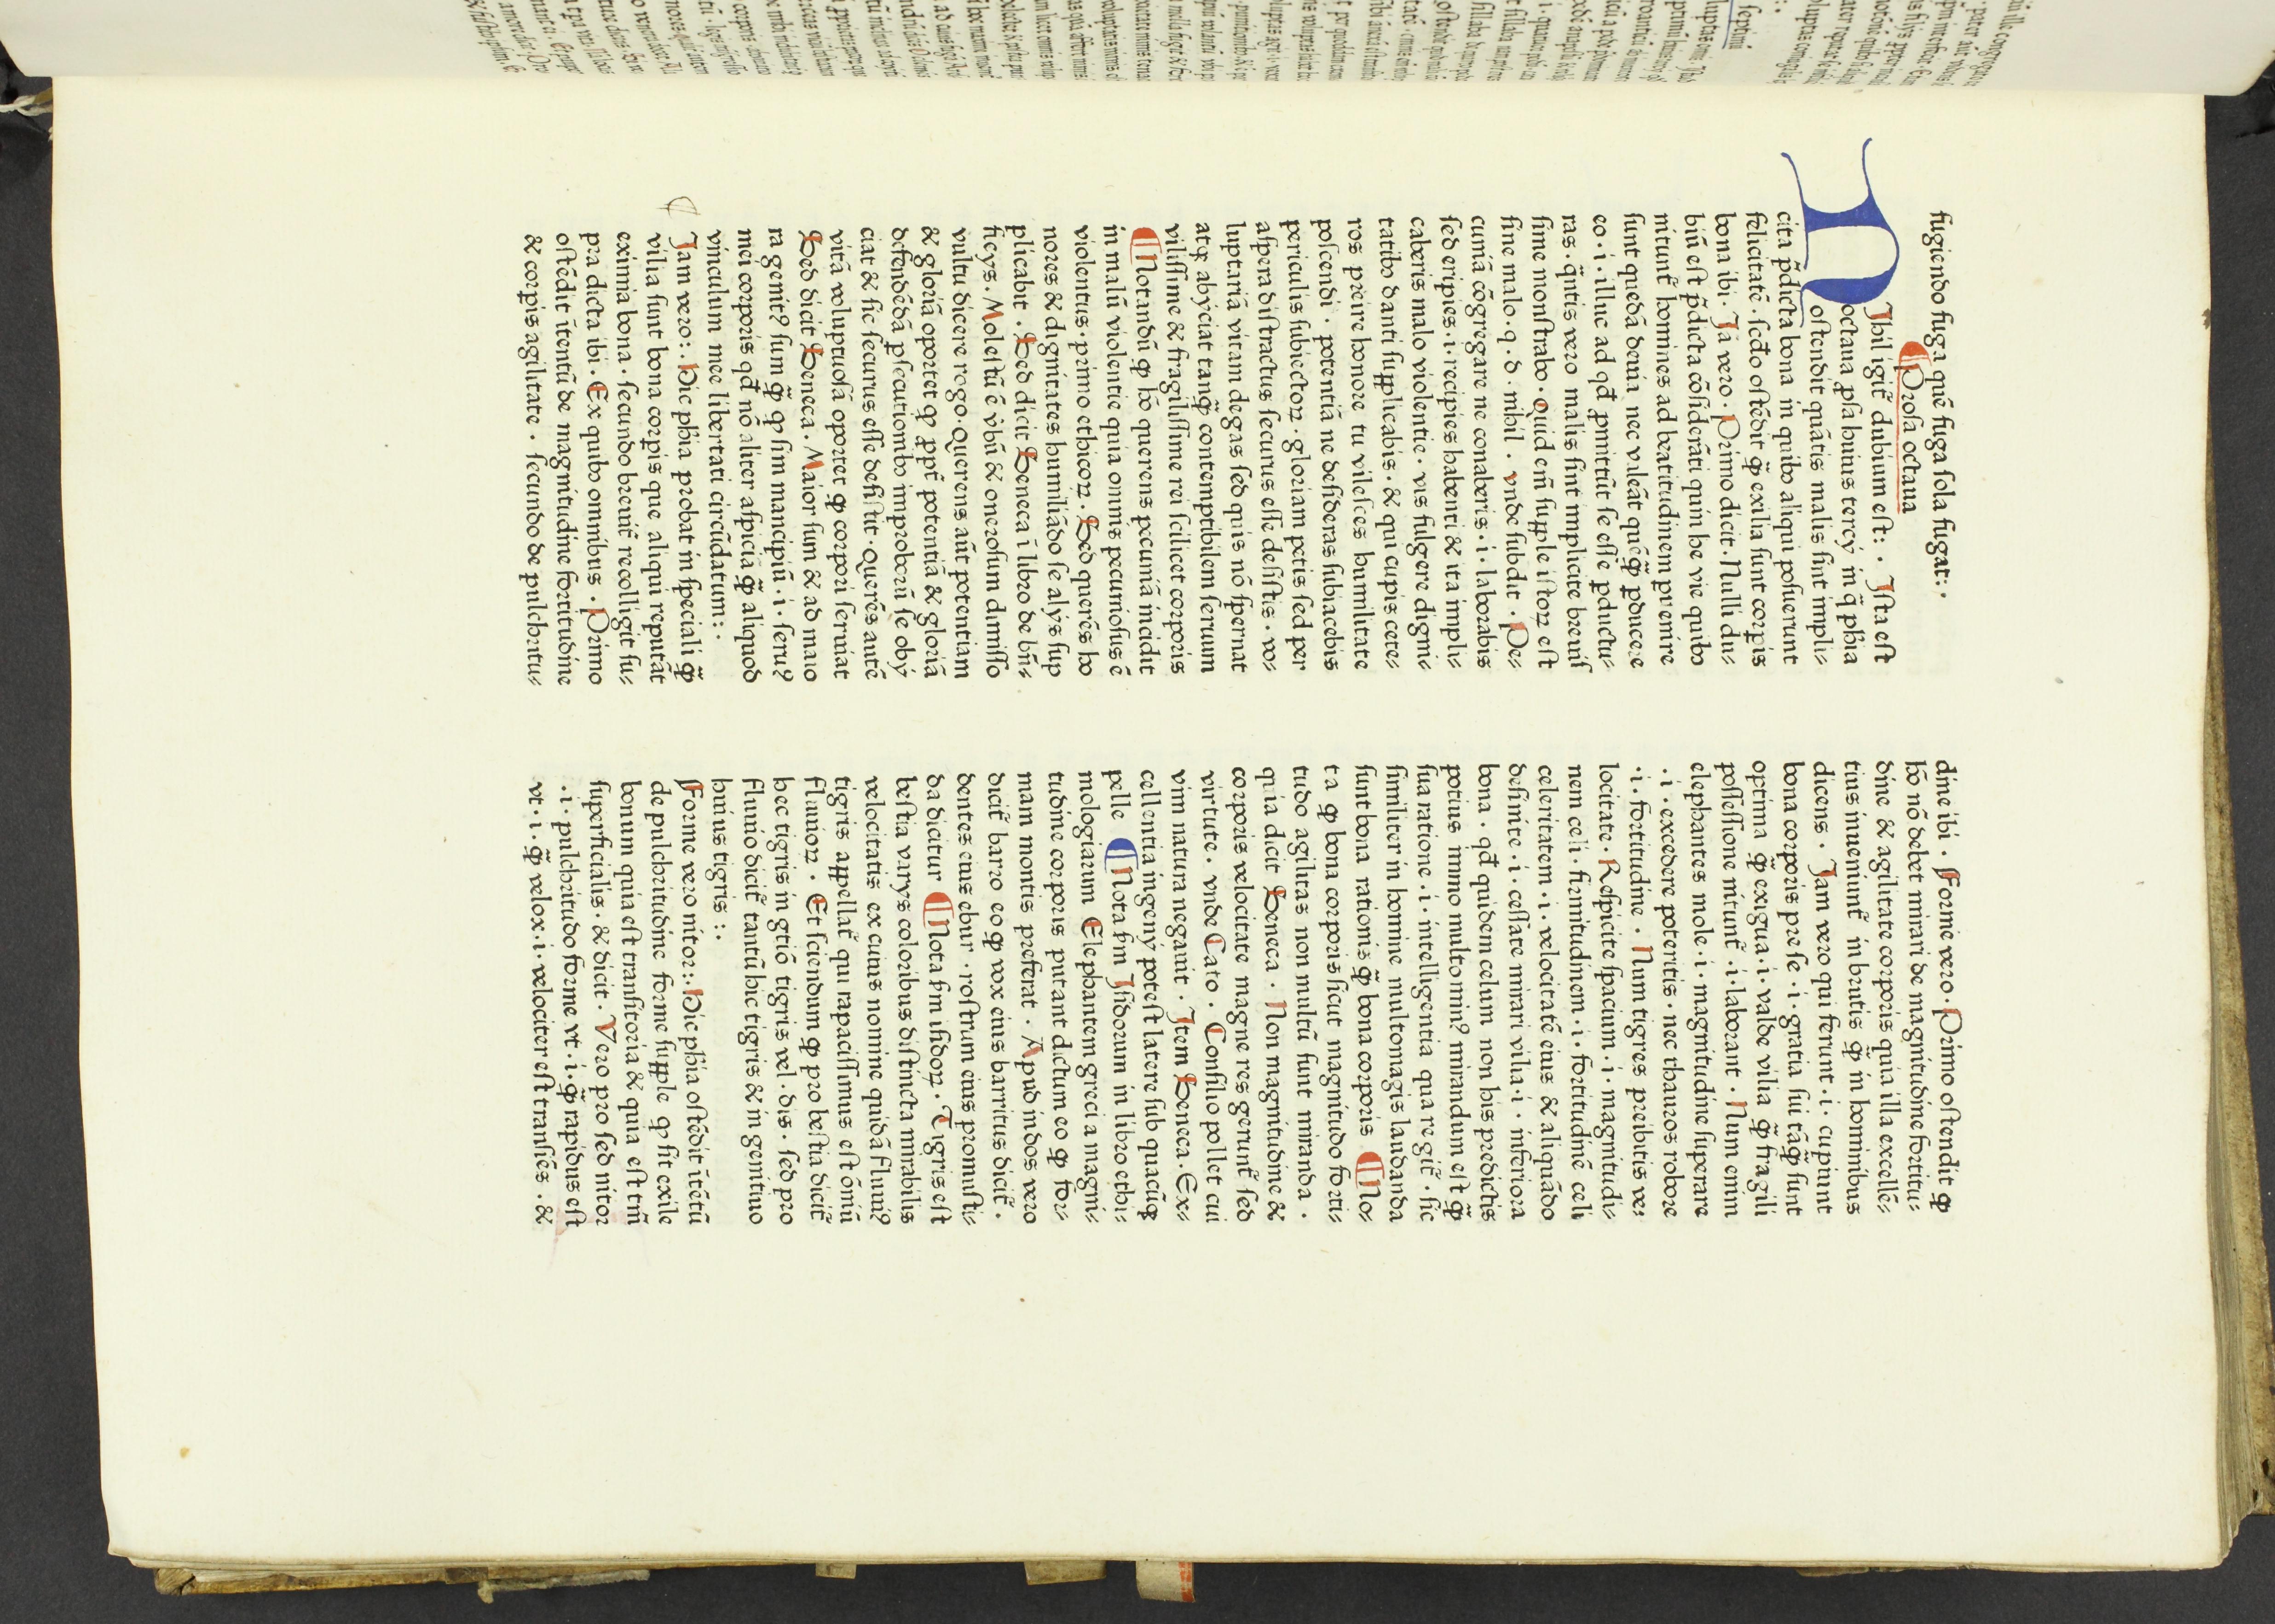 fugiendo fuga quē fuga sola fugat:·
¶Prosa octaua
NIhil igit̄ dubium est:· Ista est
octaua ꝓsa huius tercij in q̄ phīa
ostendit quātis malis sint impli⸗
cita p̄dicta bona in quibꝰ aliqui posuerunt
felicitatē · scd̄o ostēdit ꝙ̄ exilia sunt corpis
bona ibi · Iā vero · Primo dicit · Nulli du⸗
biū est p̄dicta cōsiderāti quin he vie quibꝰ
nitunt̄ homines ad beatitudinem puenire
sunt quedā deuia nec valeāt quēꝙ̄ pducere
eo · i · illuc ad qd̄ pmittūt se esse pductu⸗
ras · q̄ntis vero malis sint implicite breuis
sime monstrabo · Quid em̄ supple istoꝝ est
sine malo · q · d · nihil · vnde subdit · Pe⸗
cuniā cōgregare ne conaberis · i · laborabis
sed eripies · i · recipies habenti & ita impli⸗
caberis malo violentie · vis fulgere digni⸗
tatibꝰ danti supplicabis · & qui cupis cete⸗
ros preire honore tu vilesces humilitate
poscendi · potentiā ne desideras subiacebis
periculis subiectoꝝ · gloriam petis sed per
aspera distractus securus esse desistis · vo⸗
luptariā vitam degas sed quis nō spernat
atqꝫ abijciat tanꝙ̄ contemptibilem seruum
vilissime & fragilissime rei scilicet corporis
¶Notandū ꝙ hō querens pecuniā incidit
in malū violentie quia omnis pecuniosus ē
violentus · primo ethicoꝝ · Sed querēs ho
nores & dignitates humiliādo se alijs sup
plicabit · Sed dicit Seneca ī libro de bn̄⸗
ficijs · Molestū ē vbū & onerosum dimisso
vultu dicere rogo · Querens aūt potentiam
& gloriā oportet ꝙ ppt̄ potentiā & gloriā
defendēdā psecutionibꝰ improborū se obij
ciat & sic securus esse desistit · Querēs autē
vitā voluptuosā oportet ꝙ corpori seruiat
Sed dicit Seneca · Maior sum & ad maio
ra genitꝰ sum ꝙ̄ ꝙ sim mancipiū · i · seruꝰ
mei corporis qd̄ nō aliter aspicia ꝙ̄ aliquod
vinculum mee libertati circūdatum:·
Iam vero:· Hic phīa probat in speciali ꝙ̄
vilia sunt bona corpis que aliqui reputāt
eximia bona · secundo breuit̄ recolligit su⸗
pra dicta ibi · Ex quibꝰ omnibus · Primo
ostēdit ītentū de magnitudine fortitudine
& corpis agilitate · secundo de pulchritu⸗
dine ibi · Forme vero · Primo ostendit ꝙ
hō nō debet mirari de magnitudine fortitu⸗
dine & agilitate corporis quia illa excellē⸗
tius inueniunt̄ in brutis ꝙ̄ in hominibus
dicens · Iam vero qui ferunt · i · cupiunt
bona corporis pre se · i · gratia sui tāꝙ̄ sunt
optima ꝙ̄ exigua · i · valde vilia ꝙ̄ fragili
possessione nitunt̄ · i · laborant · Num enim
elephantes mole · i · magnitudine superare
· i · excedere poteritis · nec thauros robore
· i · fortitudine · Num tigres preibitis ve⸗
locitate · Respicite spacium · i · magnitudi⸗
nem celi · firmitudinem · i · fortitudinē celi
celeritatem · i · velocitatē eius & aliquādo
desinite · i · cessate mirari vilia · i · inferiora
bona · qd̄ quidem celum non his predictis
potius immo multo minꝰ mirandum est ꝙ̄
sua ratione · i · intelligentia qua regit̄ · sic
similiter in homine multomagis laudanda
sunt bona rationis ꝙ̄ bona corporis ¶No⸗
ta ꝙ bona corporis sicut magnitudo forti⸗
tudo agilitas non multū sunt miranda ·
quia dicit Seneca · Non magnitudine &
corporis velocitate magne res gerunt̄ sed
virtute · vnde Cato · Consilio pollet cui
vim natura negauit · Item Seneca · Ex⸗
cellentia ingenij potest latere sub quacūqꝫ
pelle ¶Nota sm̄ Isidorum in libro ethi⸗
mologiarum Elephantem greci a magni⸗
tudine corporis putant dictum eo ꝙ for⸗
mam montis preferat · Apud indos vero
dicit̄ barro eo ꝙ vox eius barritus dicit̄ ·
dentes eius ebur · rostrum eius promusci⸗
da dicitur ¶Nota sm̄ isidoꝝ · Tigris est
bestia varijs coloribus distincta mirabilis
velocitatis ex cuius nomine quidā fluuiꝰ
tigris appellat̄ qui rapacissimus est ōniū
fluuioꝝ · Et sciendum ꝙ pro bestia dicit̄
hec tigris in gtiō tigris vel · dis · sed pro
fluuio dicit̄ tantū hic tigris & in genituo
huius tigris :·
Forme vero nitor:· Hic phīa ostēdit ītētū
de pulchritudine forme supple ꝙ sit exile
bonum quia est transitoria & quia est tm̄
superficialis · & dicit · Vero pro sed nitor
· i · pulchritudo forme vt · i · ꝙ̄ rapidus est
vt · i · ꝙ̄ velox · i · velociter est transiēs · &